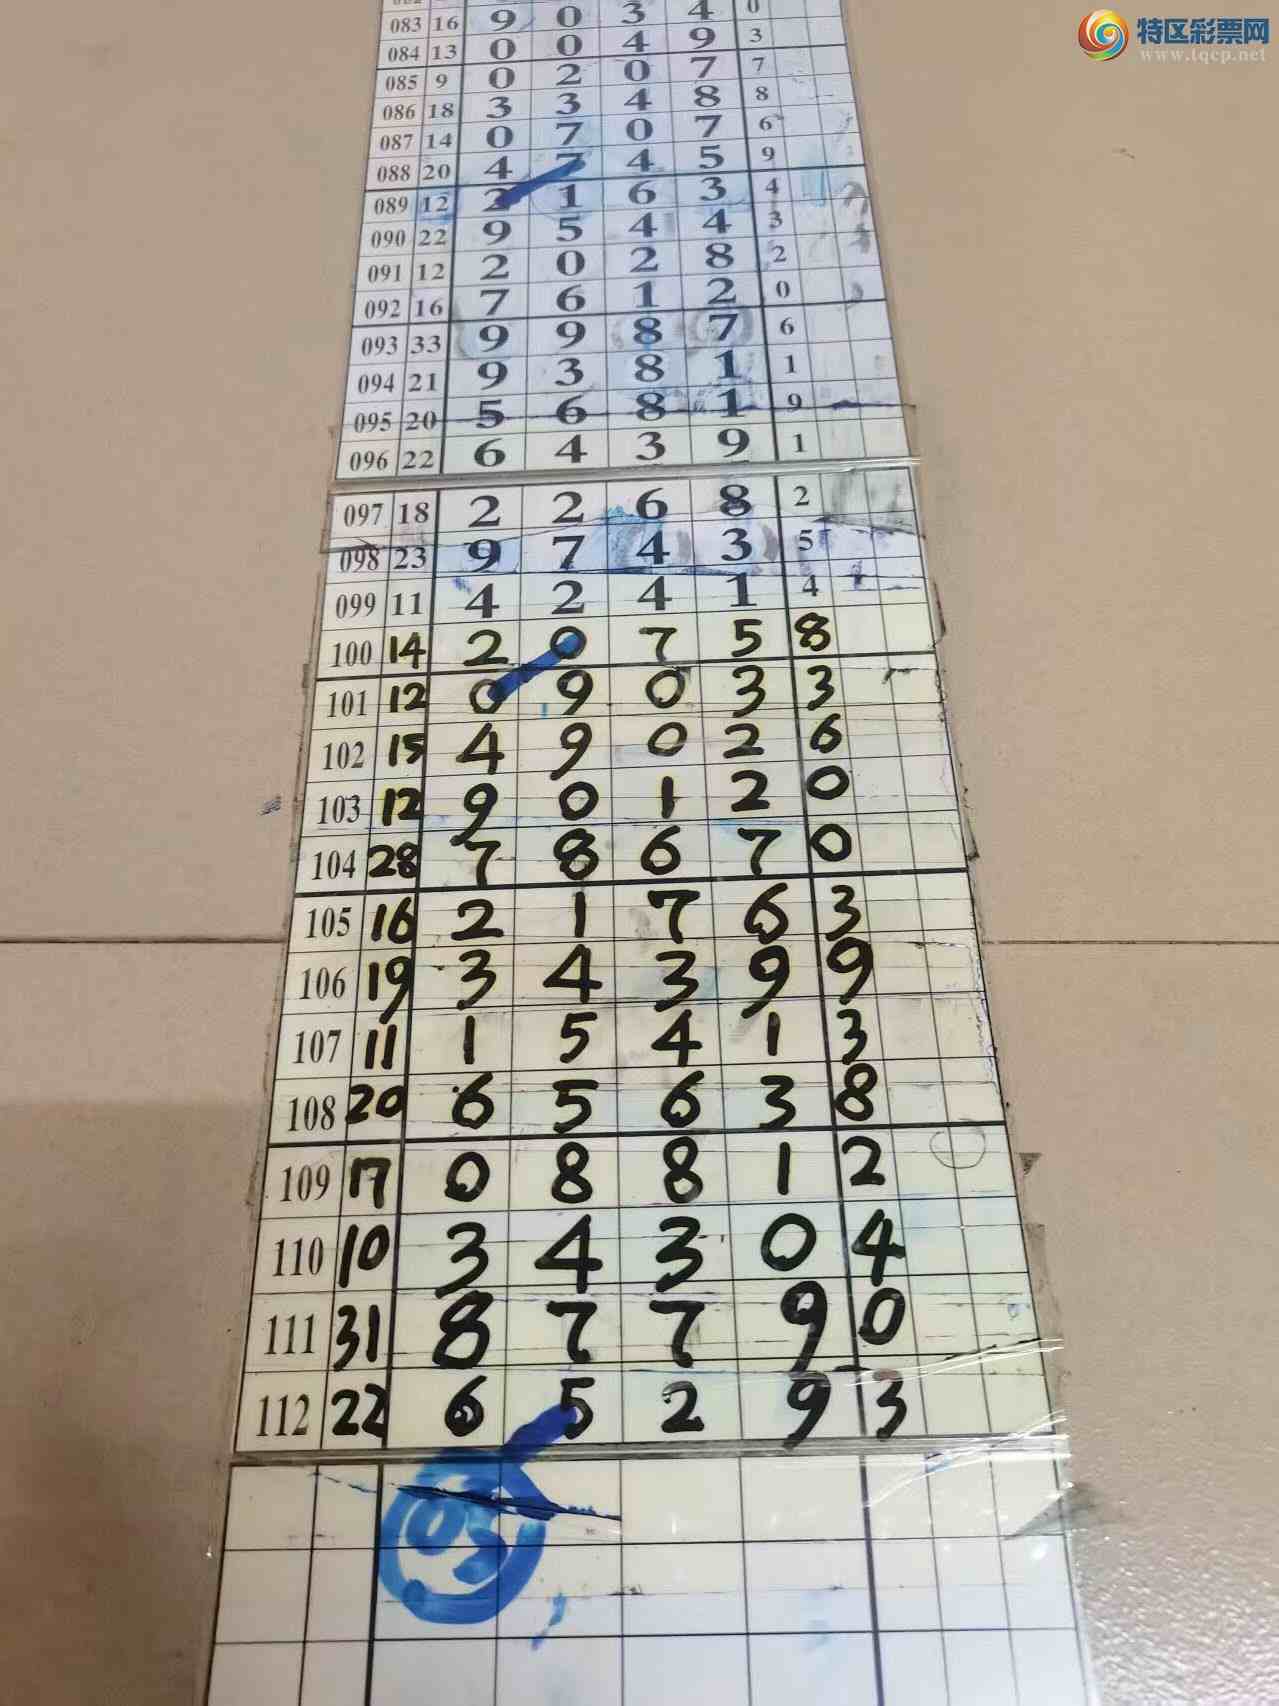 特区彩票网
www.tqcp.net
083 16 9 0 3 4 0
084 13 0 0 4 9 3
085 9 0 2 0 7 7
086 18 3 3 4 8 8
087 14 0 7 0 7 6
088 20 4 7 4 5 9
089 12 2 1 6 3 4
090 22 9 5 4 4 3
091 12 2 0 2 8 2
092 16 7 6 1 2 0
093 33 9 9 8 7 6
094 21 9 3 8 1 1
095 20 5 6 8 1 9
096 22 6 4 3 9 1
097 18 2 2 6 8 2
098 23 9 7 4 3 5
099 11 4 2 4 1 4
100 14 2 0 7 5 8
101 12 0 9 0 3 3
102 15 4 9 0 2 6
103 12 9 0 1 2 0
104 28 7 8 6 7 0
105 16 2 1 7 6 3
106 19 3 4 3 9 9
107 11 1 5 4 1 3
108 20 6 5 6 3 8
109 17 0 8 8 1 2
110 10 3 4 3 0 4
111 31 8 7 7 9 0
112 22 6 5 2 9 3
05